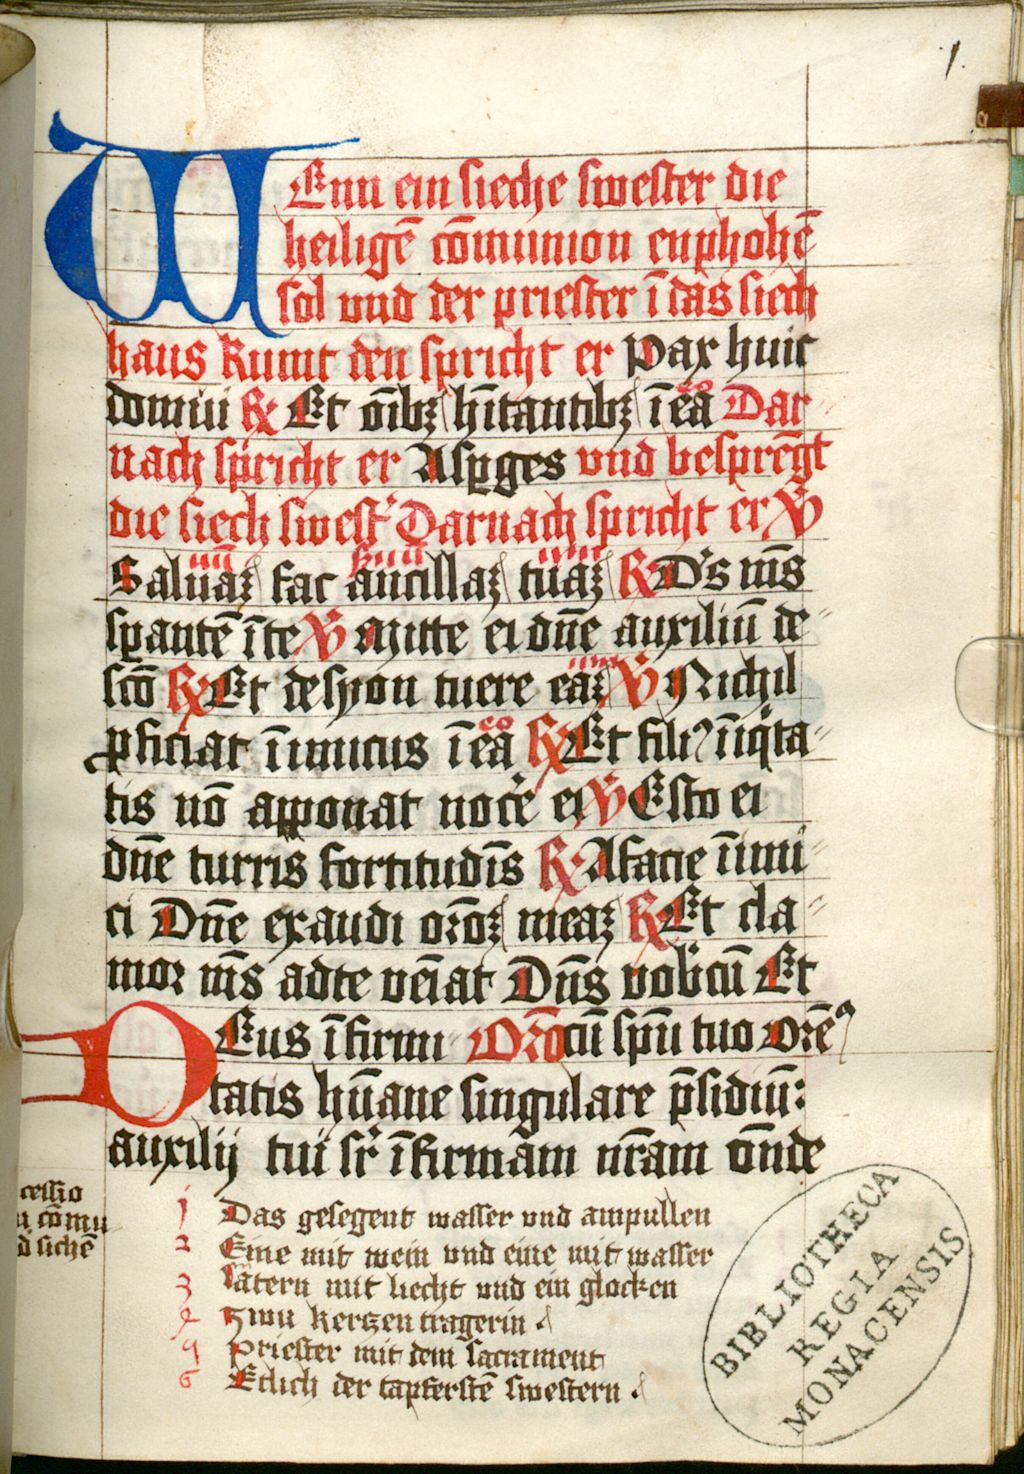 1.
WEnn ein sieche swester die
heiligē cōmunion enphohē
sol vnd der priester ī das siech
haus kumt den spricht er Pax huic
domui ℟ Et oīb₃ hītantib₃ ī eā eo Dar⸗
nach spricht er Asꝑges vnd besprēgt
die siech swest' Darnach spricht er ℣
Saluā₃ fac ancillā₃ tuā₃ ℟ D's m̄s
sꝑantē ī te ℣ Mitte ei dn̄e auxiliū de⸗
scō ℟ Et desyon tuere eā₃ ℣ Nichil
ꝓficiat īimicus ī eā eo ℟ Et fili⁹ īiqita⸗
tis nō apponat nocē ei ℣ Esto ei
dn̄e turris fortitudīs ℟ A facie īimi⸗
ci Dn̄e exaudi orōē₃ mea₃ ℟ Et cla⸗
mor m̄s ad te veīat Dn̄s vob'cū Et
DEus ī firmi Orō cū spū tuo Orē
tatis hūane singulare p̄sidiū:
auxilij tui sr̄ īfirmam nr̄am on̄de
cessio
cōmu
d sichē
1 Das gesegent wasser vnd ampullen
2 Eine mit wein vnd eine mit wasser
3 Latern mit liecht vnd ein glocken
4 Zwu kerczen tragerin
5 Priester mit dem sacrament
6 Etlich der tapferstē swestern
BIBLIOTHECA
REGIA
MONACENSIS